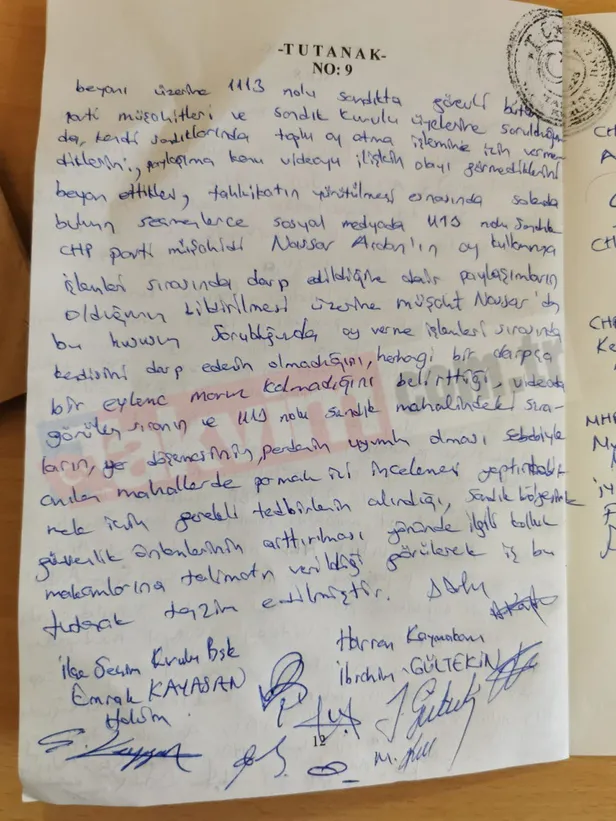 -TUTANAK-
NO: 9
beyanı üzerine 1113 nolu sandıkta görevli bütün
parti müşahitleri ve sandık kurulu üyelerine sorulduğun
da, kendi sandıklarında toplu oy atma işlemine izin verme
diklerini, paylaşıma konu videoya ilişkin olayı görmediklerini
beyan ettikleri, tahkikatın yürütülmesi esnasında salonda
bulunan seçmenlerce sosyal medyada 1113 nolu Sandık
CHP parti müşahidi Nassar 'ın oy kullanma
işlemleri sırasında darp edildiğine dair paylaşımların
olduğunun bildirilmesi üzerine müşahit Nassar'da
bu husus sorulduğunda oy verme işlemleri sırasında
kendisini darp edenin olmadığını, herhangi bir darpça
bir eylence maruz kalmadığını belirttiği, videoda
görülen sıranın ve 1113 nolu sandık mahalindeki sıra-
ların, yer döşemesinin, perdenin uyumlu olması sebebiyle
anılan mahallerde parmak izi incelemesi
mek için gerekli tedbirlerin alındığı, sandık bölgesinde
güvenlik önlemlerinin arttırılması yönünde ilgili kolluk
makamlarına talimatın verildiği görülerek iş bu
tutanak tanzim edilmiştir.
İlçe Seçim Kurulu Bşk
Emrah KAYASAN
Hakim
Harran Kaymakamı
İbrahim GÜLTEKİN
12
takvim.com.tr
T.C.
CHP
CHP
CHP
MHP